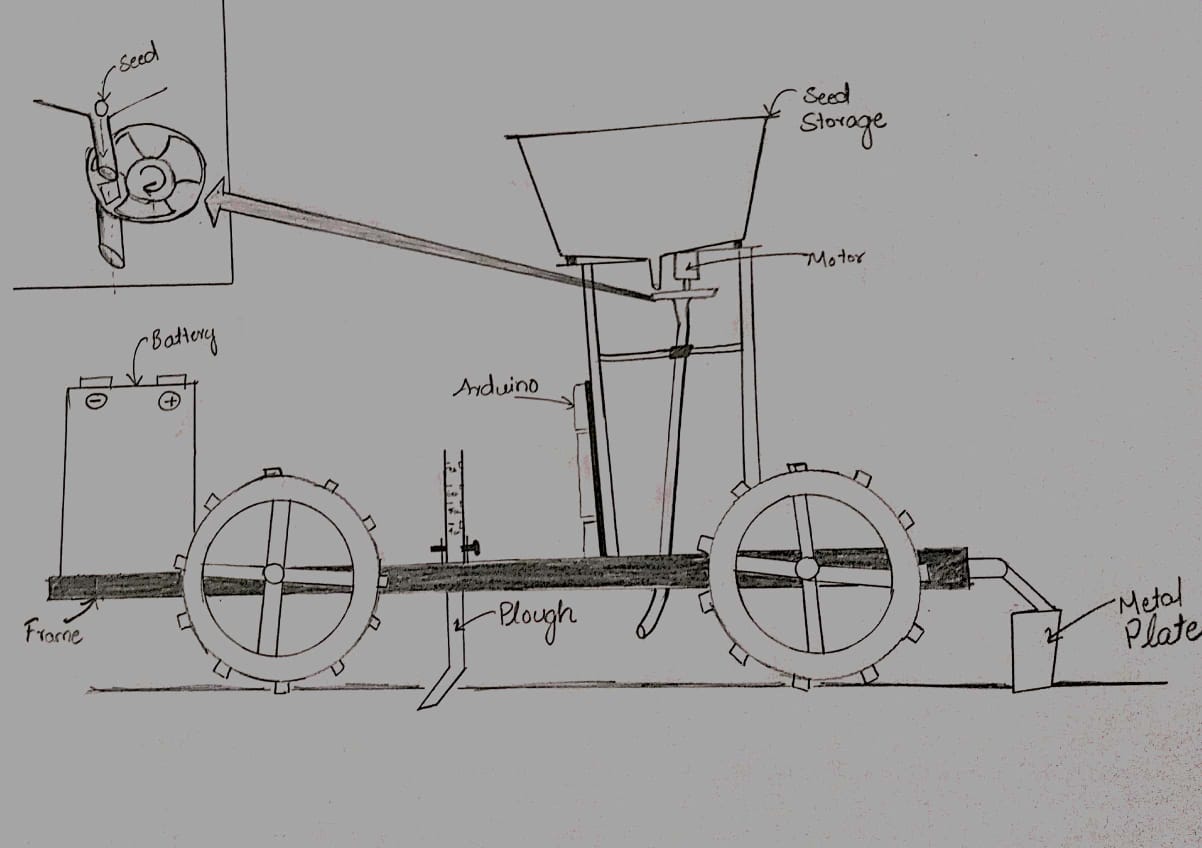 Seed
Seed
Storage
Motor
Battery
- +
Arduino
Plough
Frame
Metal
Plate